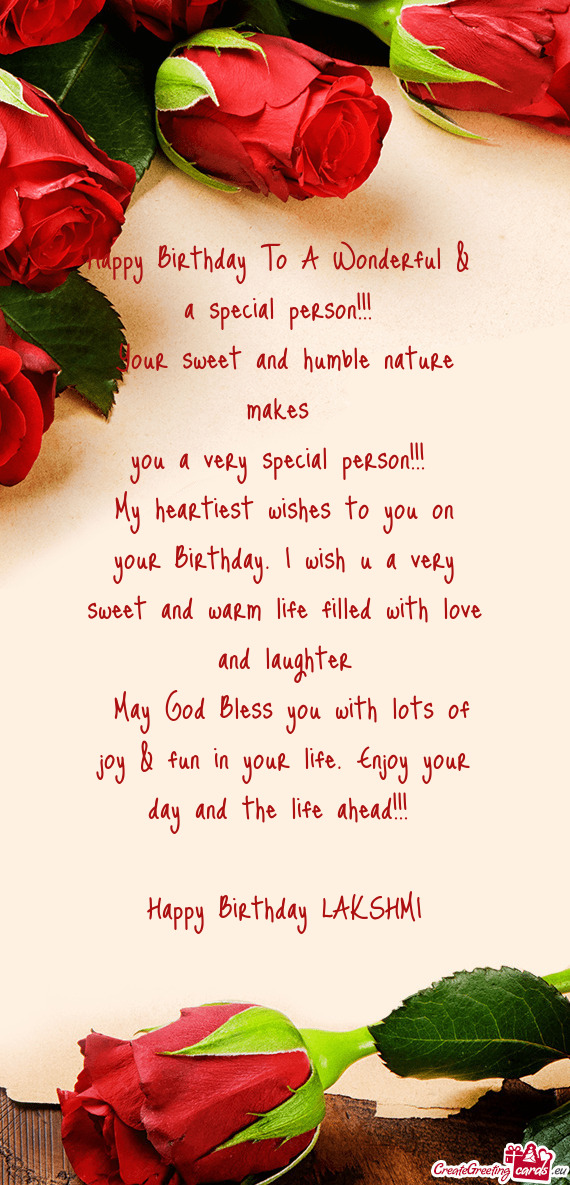 Happy Birthday To A Wonderful &
a special person!!!
Your sweet and humble nature
makes
you a very special person!!!
My heartiest wishes to you on
your Birthday. I wish u a very
sweet and warm life filled with love
and laughter
May God Bless you with lots of
joy & fun in your life. Enjoy your
day and the life ahead!!!
Happy Birthday LAKSHMI
CreateGreetingcards.eu